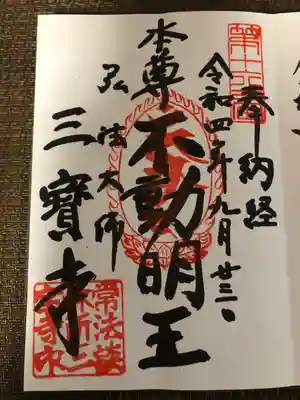 奉納経
令和四年九月廿三日
本尊不動明王
弘法大師
三寳寺